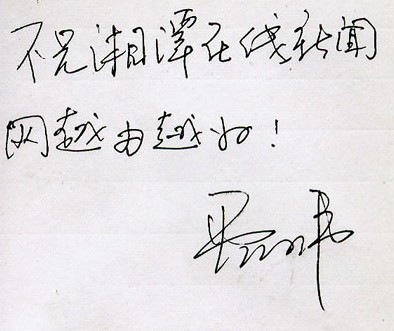 祝湘潭在线新闻
网越办越好！